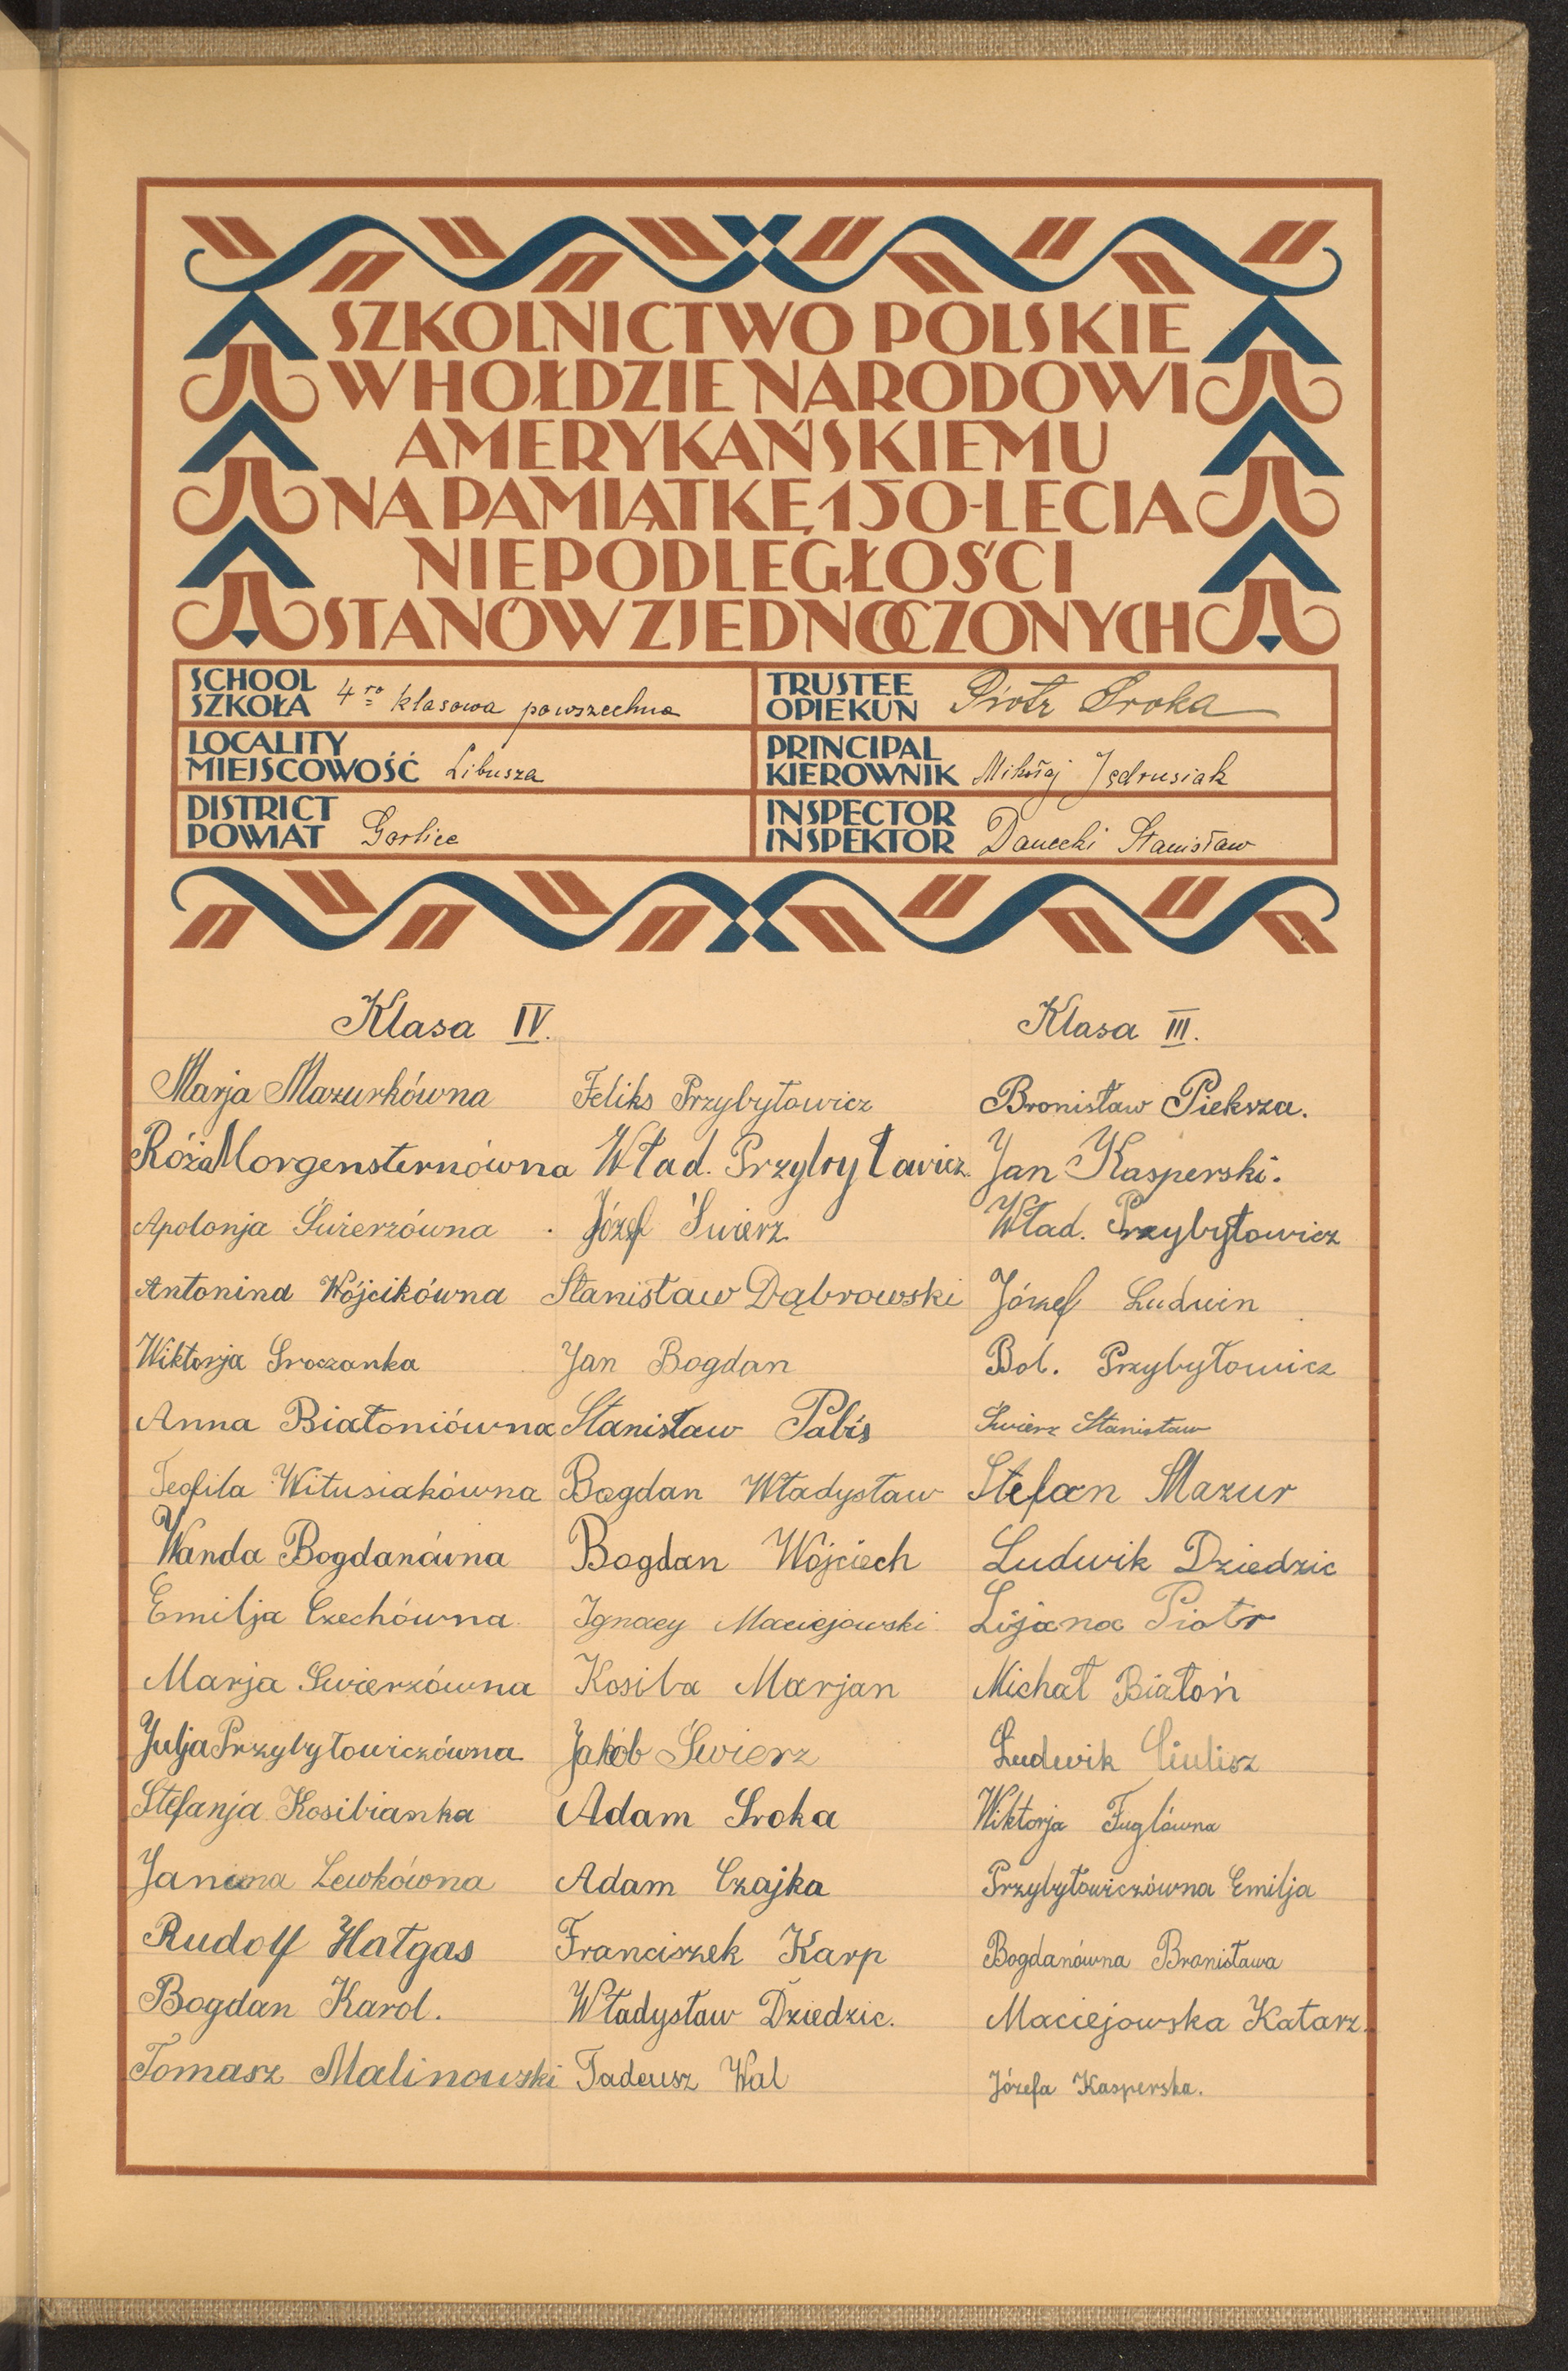 SZKOLNICTWO POLSKIE
W HOŁDZIE NARODOWI
AMERYKAŃSKIEMU
NA PAMIĄTKĘ 150-LECIA
NIEPODLEGŁOŚCI
STANÓW ZJEDNOCZONYCH
SCHOOL
SZKOŁA 4ro klasowa powszechna
TRUSTEE
OPIEKUN Piotr Sroka
LOCALITY
MIEJSCOWOŚĆ Libusza
PRINCIPAL
KIEROWNIK Mikołaj Jędrusiak
DISTRICT
POWIAT Gorlice
INSPECTOR
INSPEKTOR Danecki Stanisław
Klasa IV.
Marja Mazurkówna
Róża Morgensternówna
Apolonja Świerzówna
Antonina Wójcikówna
Wiktorja Sroczanka
Anna Białoniówna
Teofila Witusiakówna
Wanda Bogdanówna
Emilja Czechówna
Marja Świerzówna
Julja Przybyłowiczówna
Stefanja Kosibianka
Janina Lewkówna
Rudolf Hałgas
Bogdan Karol.
Tomasz Malinowski
Feliks Przybyłowicz
Wład. Przybyłowicz
Józef Świerz
Stanisław Dąbrowski
Jan Bogdan
Stanisław Pabis
Bogdan Władysław
Bogdan Wojciech
Ignacy Maciejowski
Kosiba Marjan
Jakób Świerz
Adam Sroka
Adam Czajka
Franciszek Karp
Władysław Dziedzic.
Tadeusz Wal
Klasa III.
Bronisław Pieksza.
Jan Kasperski.
Wład. Przybyłowicz
Józef Ludwin
Bol. Przybyłowicz
Świerz Stanisław
Stefan Mazur
Ludwik Dziedzic
Lijana Piotr
Michał Białoń
Ludwik Ciulisz
Wiktorja Fuglówna
Przybyłowiczówna Emilja
Bogdanówna Bronisława
Maciejowska Katarz.
Józefa Kasperska.